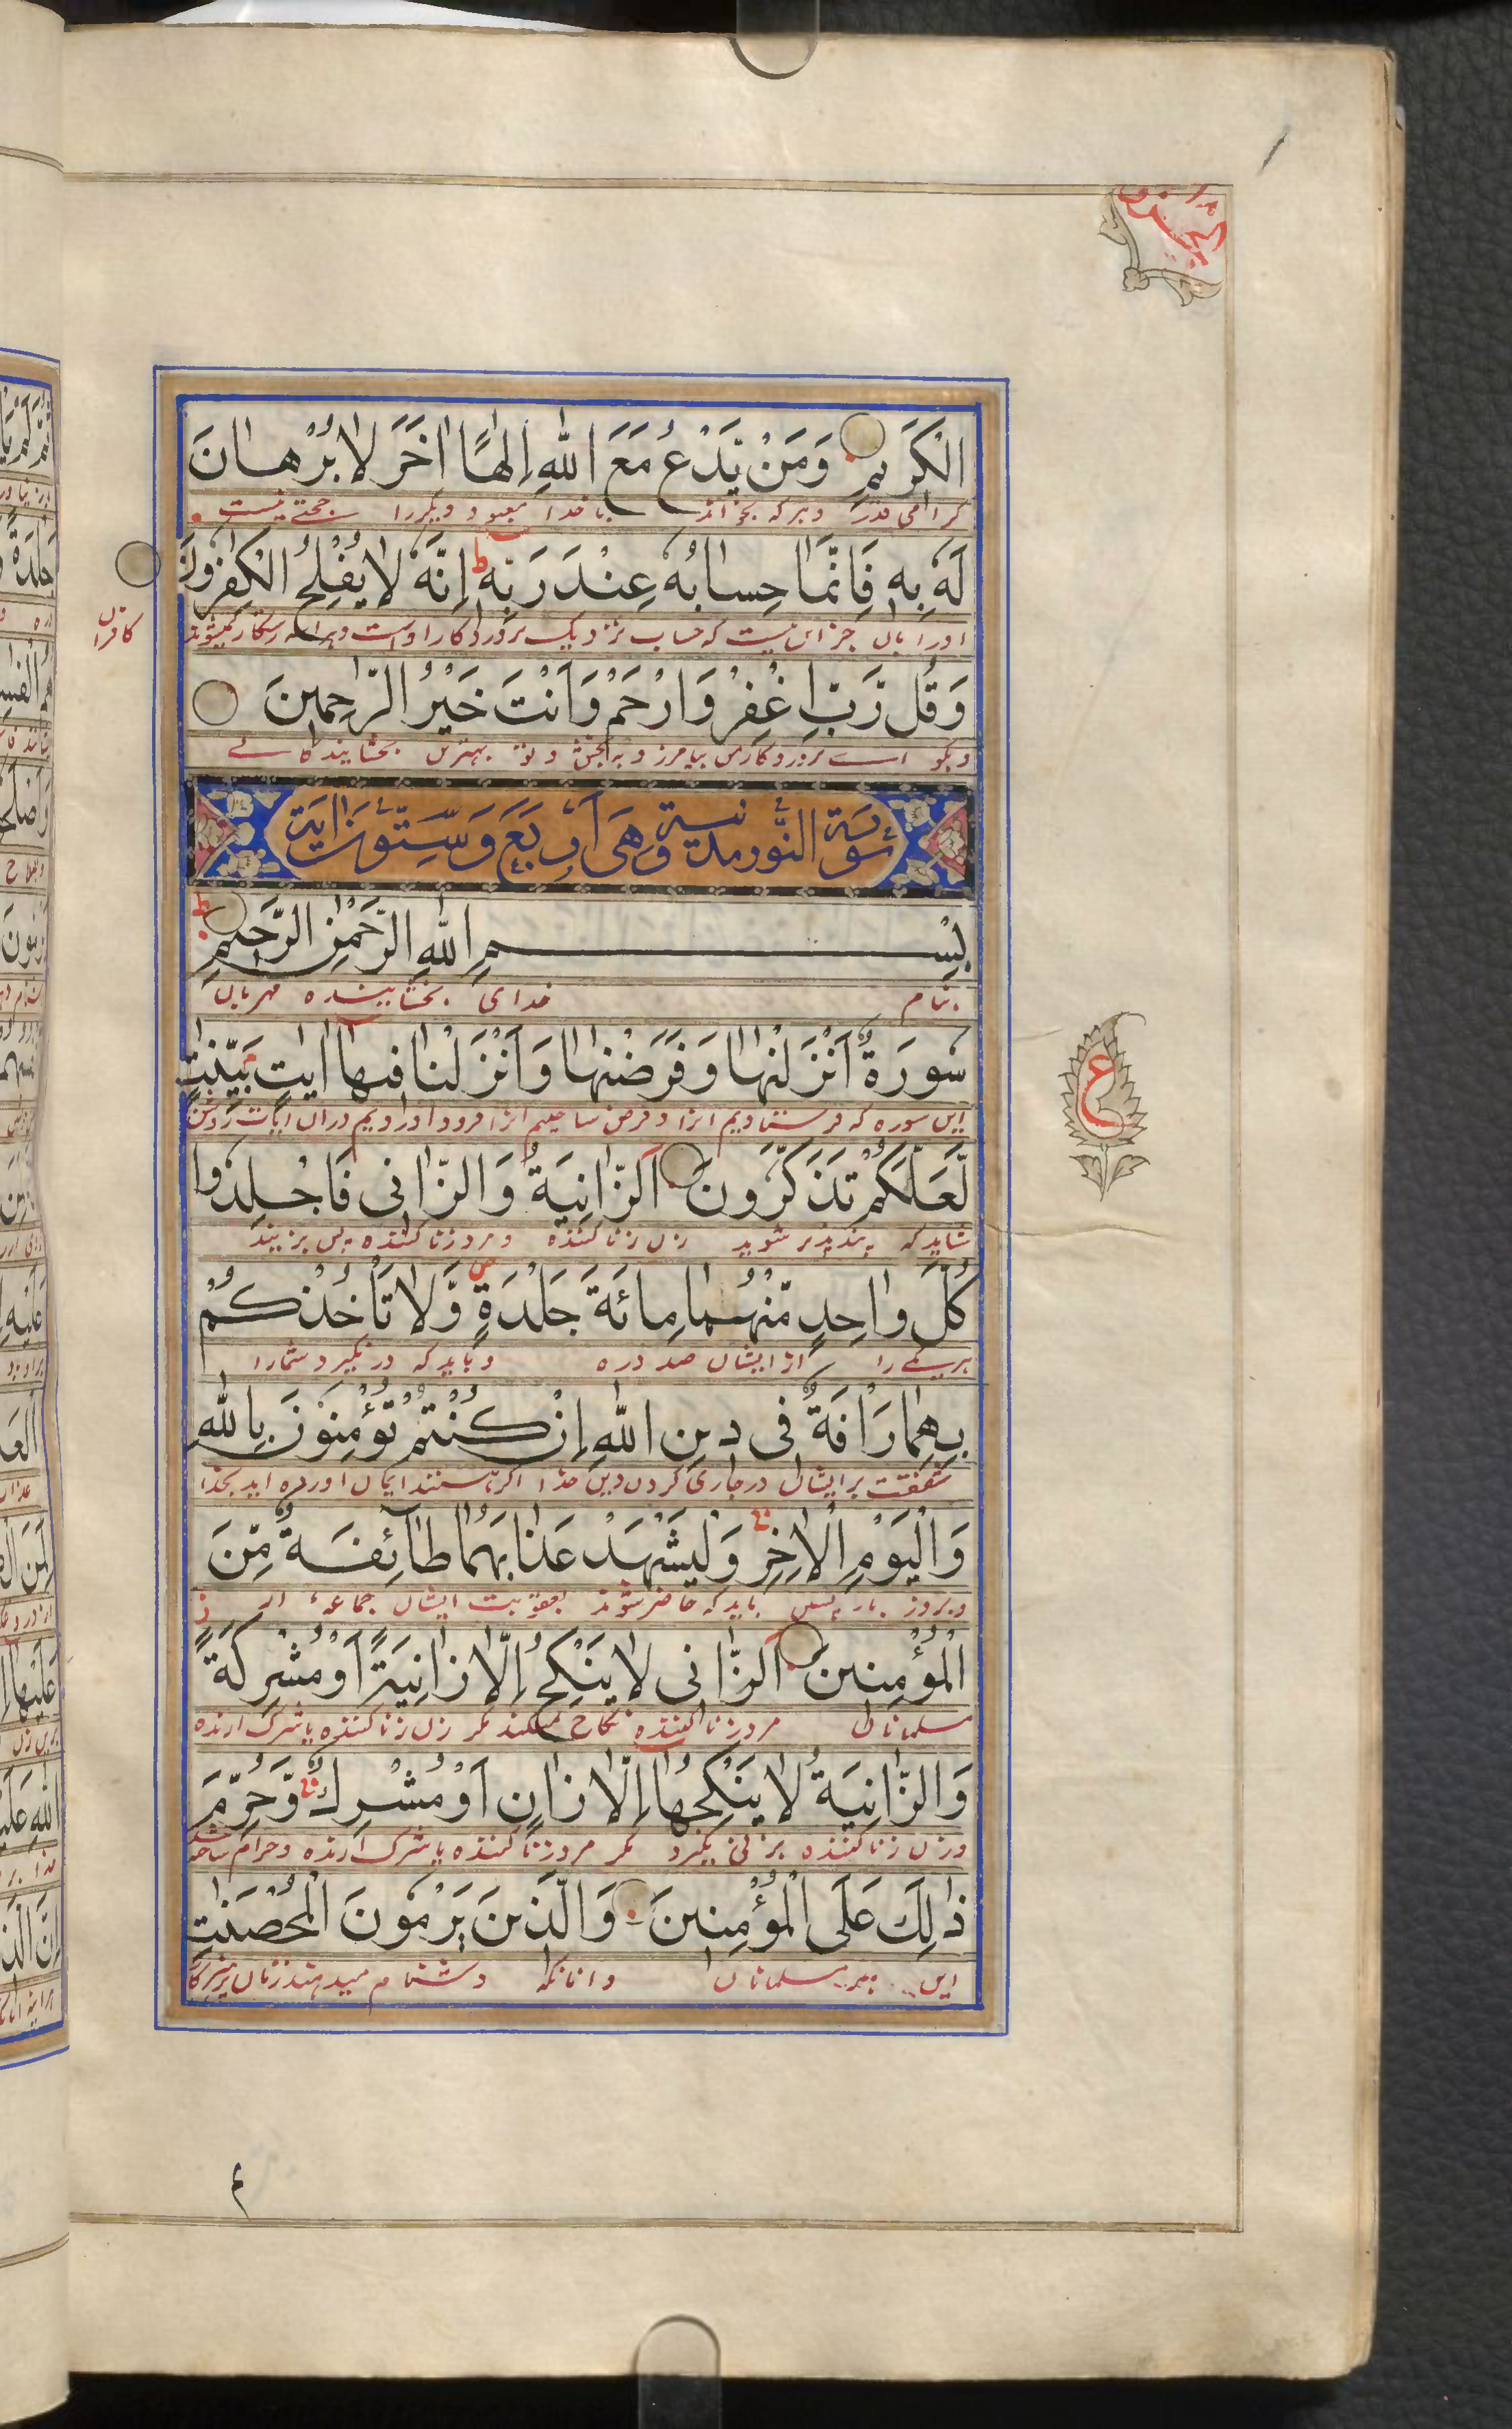 الجزو ١٨
الْكَرِيمِ وَمَنْ يَّدْعُ مَعَ اللهِ اِلٰهًا اٰخَرَ لَا بُرْهَانَ
گرامی قدر و هرکه بخواند با خدا معبود دیگر را حجتے نیست
لَهٗ بِهٖ فَاِنَّمَا حِسَابُهٗ عِنْدَ رَبِّهٖ ط اِنَّهٗ لَا يُفْلِحُ الْكٰفِرُوْنَ
اورا بان جز این نیست که حساب نزدیک پروردگار اوست رستگار نمیشوند
کافران
وَقُلْ رَّبِّ اغْفِرْ وَارْحَمْ وَاَنْتَ خَيْرُ الرّٰحِمِيْنَ
و بگو اے پروردگار من بیامرز و ببخش و تو بهترین بخشایندگانے
سورة النّور مدنية وهى أربع وستّون اٰية
بِسْمِ اللهِ الرَّحْمٰنِ الرَّحِيْمِ ط
بنام خدای بخشاینده مهربان
سُوْرَةٌ اَنْزَلْنٰهَا وَفَرَضْنٰهَا وَاَنْزَلْنَا فِيْهَا اٰيٰتٍ بَيِّنٰتٍ
این سوره که فرستادیم انرا و فرض ساختیم انرا فرود اوردیم دران ایات روشن
لَّعَلَّكُمْ تَذَكَّرُوْنَ اَلزَّانِيَةُ وَالزَّانِیْ فَاجْلِدُوْا
شاید که پندپذیر شوید زن زنا کننده و مرد زنا کننده پس بزنید
كُلَّ وَاحِدٍ مِّنْهُمَا مِائَةَ جَلْدَةٍ ص وَّلَا تَأْخُذْكُمْ
هریکے را از ایشان صد دره و باید که درنگیرد شمارا
بِهِمَا رَاْفَةٌ فِیْ دِيْنِ اللهِ اِنْ كُنْتُمْ تُؤْمِنُوْنَ بِاللهِ
شفقت بر ایشان در جاری کردن دین خدا اگر هستند ایمان اورده اید بخدا
وَالْيَوْمِ الْاٰخِرِ وَلْيَشْهَدْ عَذَابَهُمَا طَآئِفَةٌ مِّنَ
و بروز باز پسین باید که حاضر شوند بعقوبت ایشان جماعهٔ از
الْمُؤْمِنِيْنَ اَلزَّانِیْ لَا يَنْكِحُ اِلَّا زَانِيَةً اَوْ مُشْرِكَةً
مسلمانان مرد زنا کننده نکاح نمیکند مگر زن زنا کننده یا شرک ارنده
وَالزَّانِيَةُ لَا يَنْكِحُهَا اِلَّا زَانٍ اَوْ مُشْرِكٌ وَّحُرِّمَ
و زن زنا کننده بزنی نگیرد مگر مرد زنا کننده یا شرک ارنده و حرام ساخته شد
ذٰلِكَ عَلَى الْمُؤْمِنِيْنَ وَالَّذِيْنَ يَرْمُوْنَ الْمُحْصَنٰتِ
این بر مسلمانان و انانکه دشنام میدهند زنان
ع